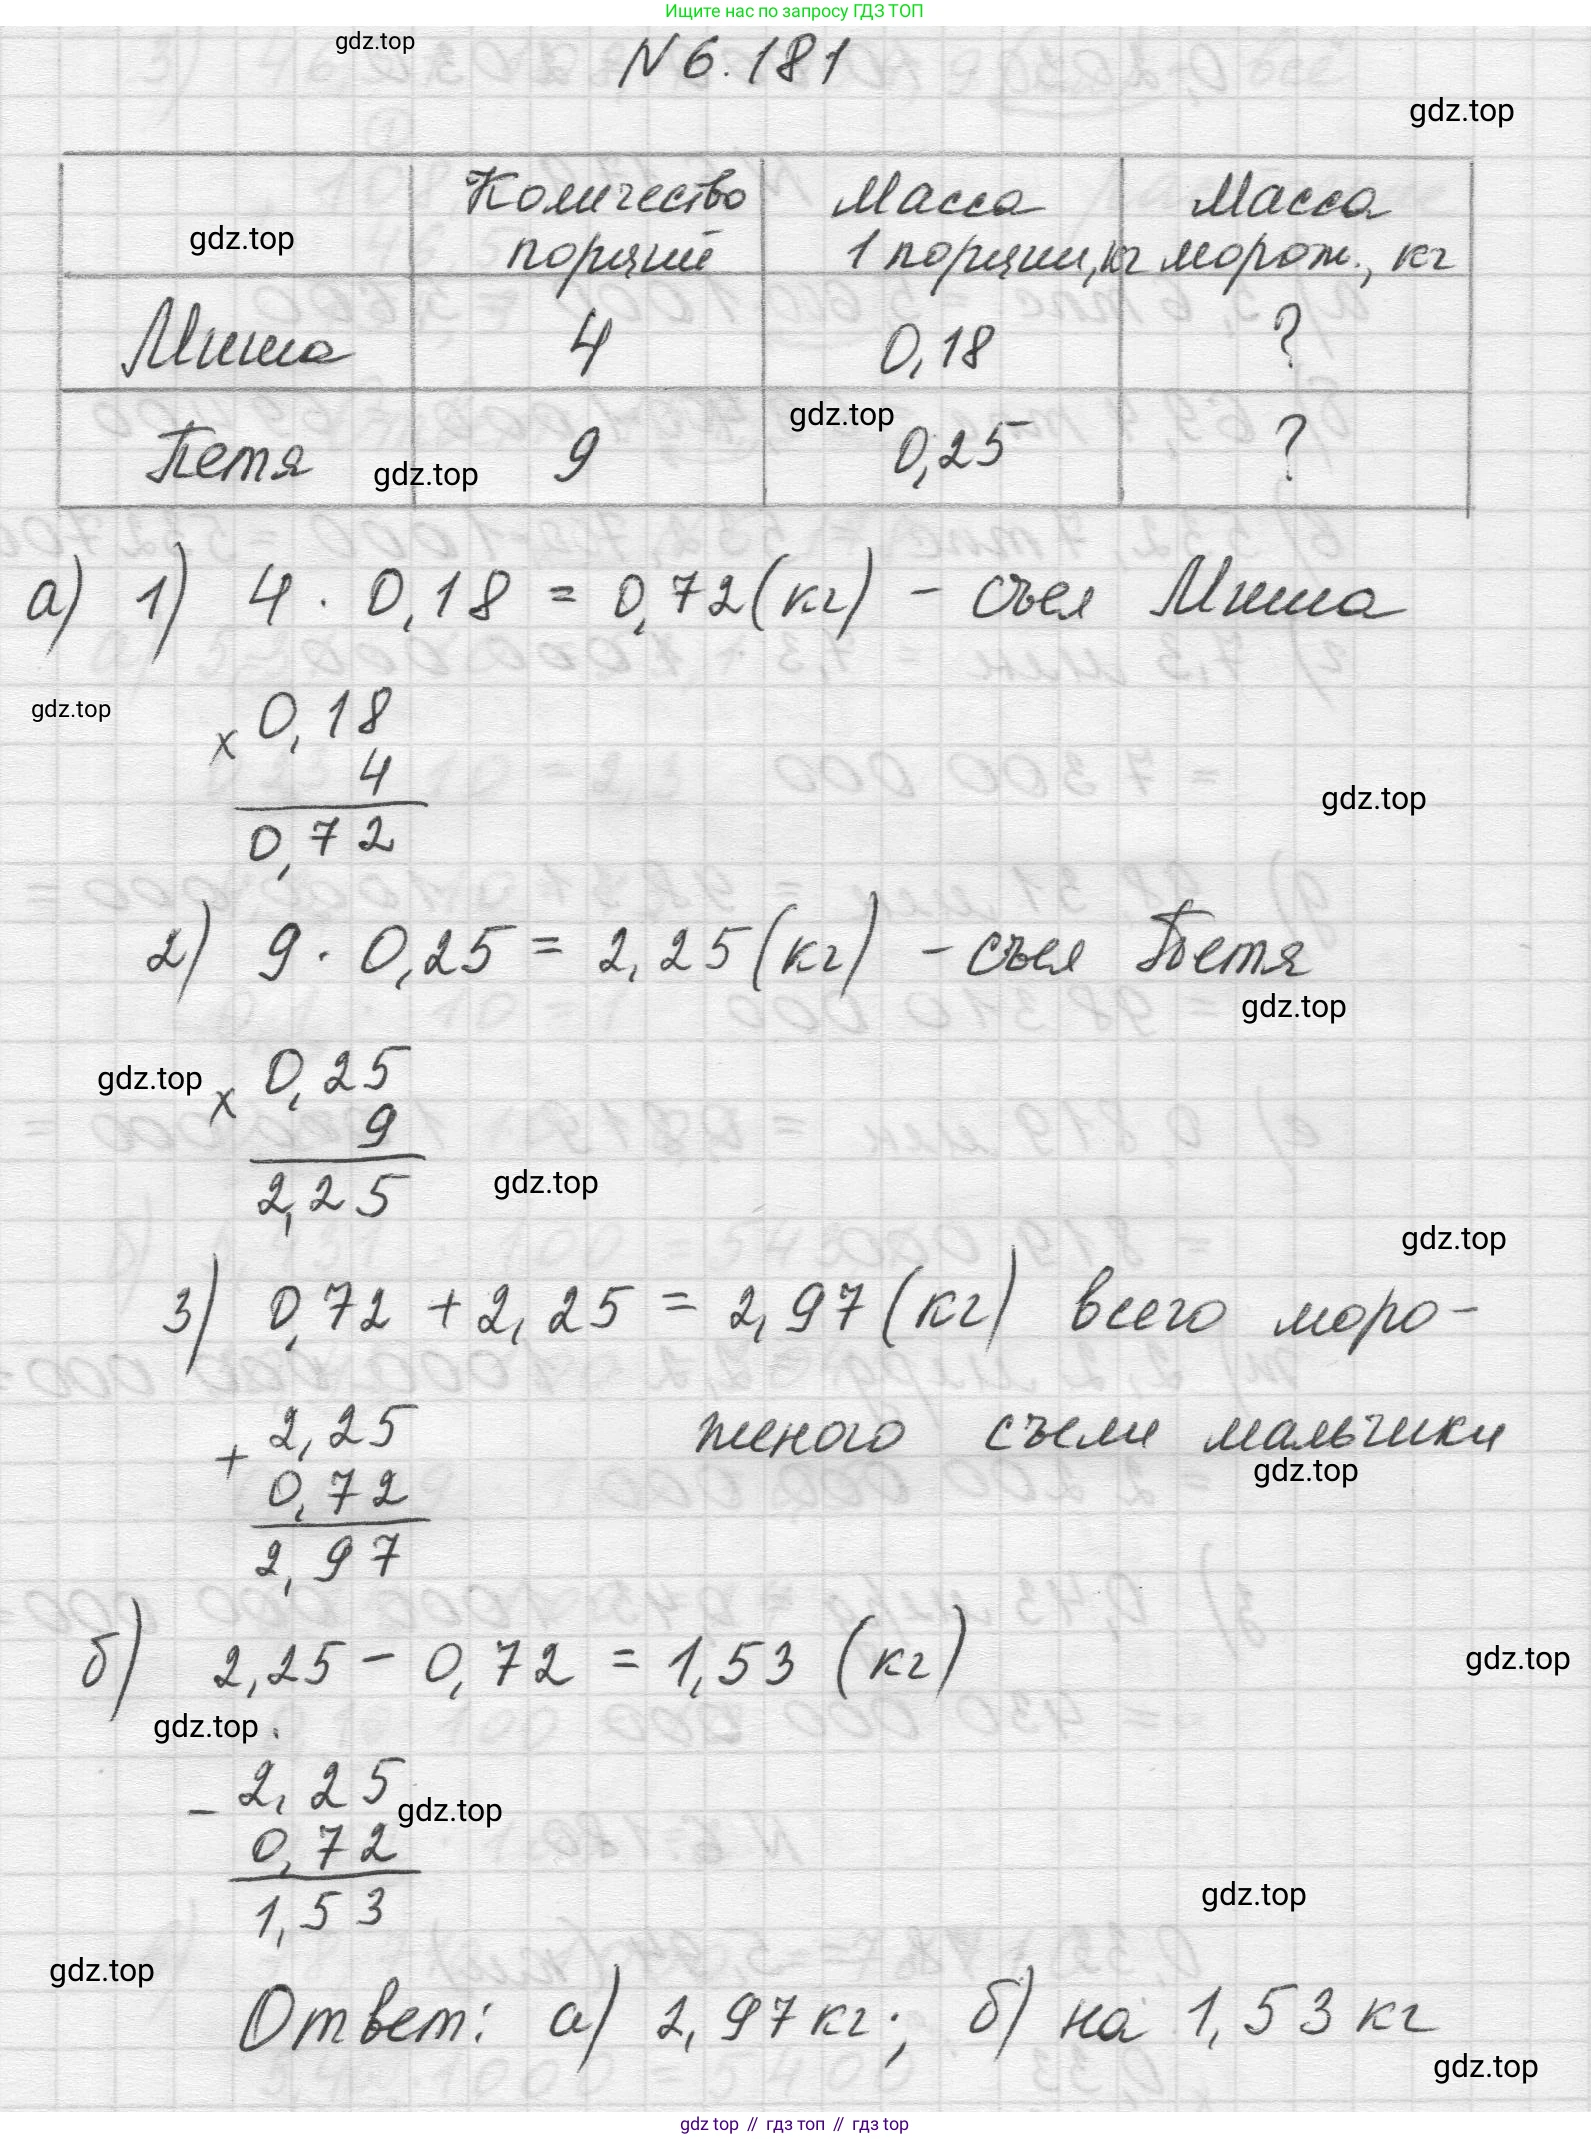 Ищите нас по запросу ГДЗ ТОП
gdz.top
N 6.181
gdz.top
Количество порций
Масса 1 порции, кг
Масса морож., кг
gdz.top
Миша 4 0,18 ?
gdz.top
Петя 9 0,25 ?
gdz.top
а) 1) 4 · 0,18 = 0,72 (кг) - съел Миша
gdz.top
× 0,18
4
gdz.top
0,72
2) 9 · 0,25 = 2,25 (кг) - съел Петя
gdz.top
gdz.top
× 0,25
9
gdz.top
2,25
gdz.top
3) 0,72 + 2,25 = 2,97 (кг) всего моро-
женого съели мальчики
+ 2,25
gdz.top
0,72
2,97
б) 2,25 - 0,72 = 1,53 (кг)
gdz.top
gdz.top
- 2,25
gdz.top
0,72
1,53
gdz.top
gdz.top
Ответ: а) 2,97 кг; б) на 1,53 кг
gdz.top
gdz top // гдз топ // gdz top